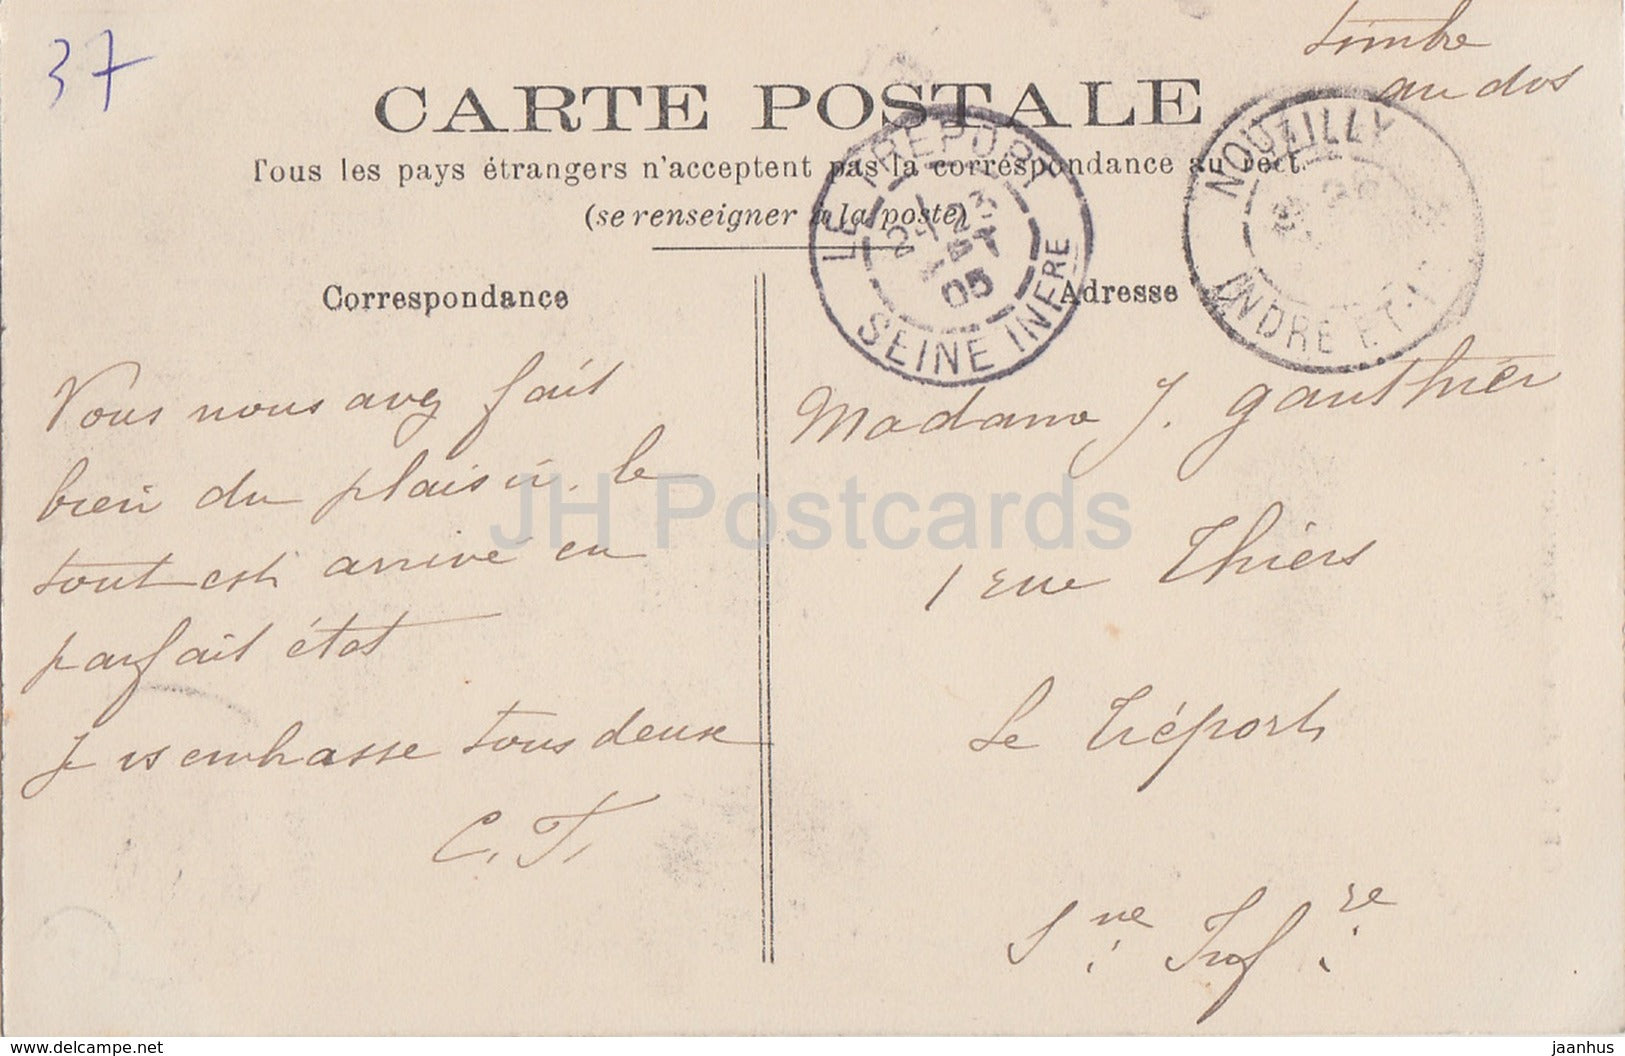 37
timbre
au dos
CARTE POSTALE
Tous les pays étrangers n'acceptent pas la correspondance au rect
(se renseigner à la poste)
LE TREPORT
23
05
SEINE INFRE
NOUZILLY
INDRE ET
Correspondance
Adresse
Vous nous avez fait
bien du plaisir. le
tout est arrivé en
parfait état
Je vs embrasse tous deux
C. T.
Madame J. Gauthier
1 rue Thiers
Le Tréport
Sne Infre
JH Postcards
www.delcampe.net
jaanhus